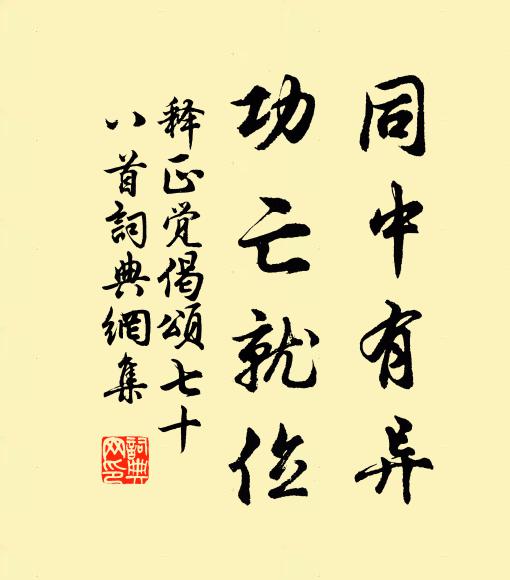 同中有异
功亡就位
释正觉偈颂七十
八首詞典網集
詞典网印